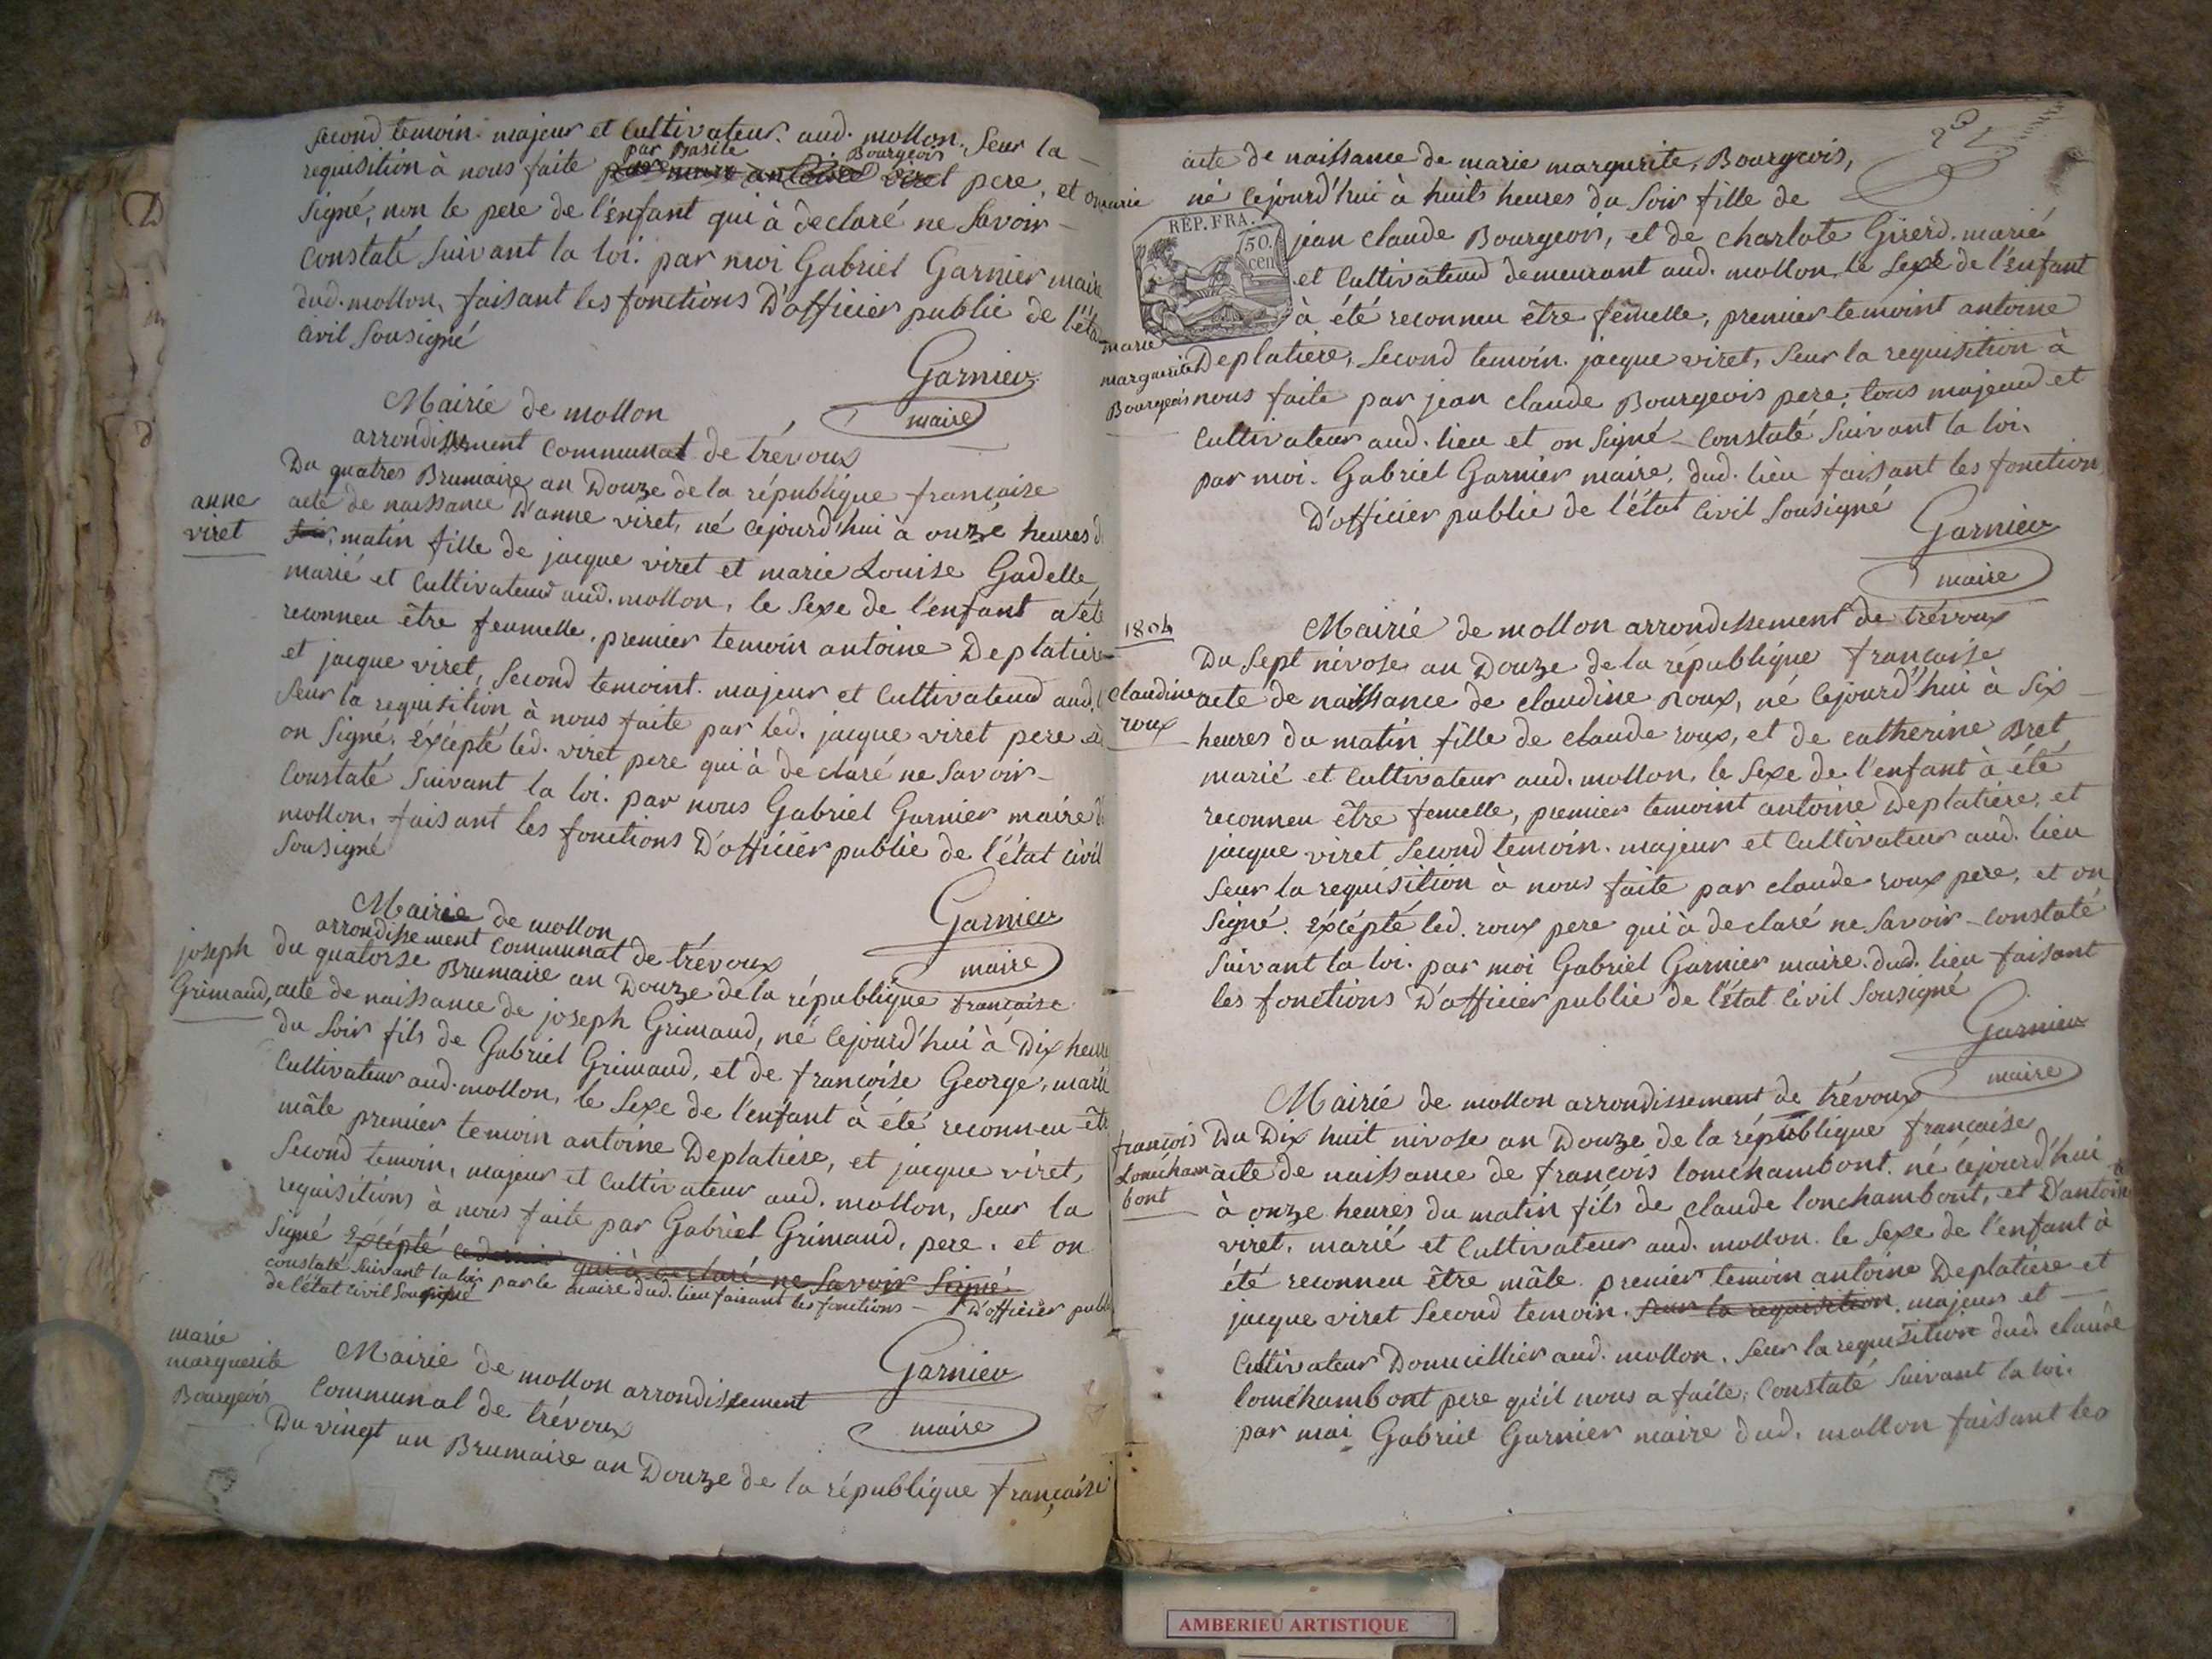 second temoin majeur et Cultivateur aud. mollon. Seur la
requisition à nous faite par Basile Bourgeois pere, et on
Signé, non le pere de l'énfant qui à declaré ne Savoir
Constaté Suivant la loi. par moi Gabriel Garnier maire
dud. mollon, faisant les fonctions D'officier public de l'éta
Civil Sousigné
Garnier
maire
Mairie de mollon
arrondissement Communal de trévoux
Du quatres Brumaire an Douze de la république francaise
anne
viret
acte de naissance D'anne viret, né cejourd'hui à onze heures d
matin fille de jacque viret et marie Louise Gadelle
marié et Cultivateur aud. mollon, le Sexe de l'enfant a été
reconneu être feumelle, premier temoin antoine Deplatiere
et jacque viret, Second temoint. majeur et Cultivateur aud.
Seur la requisition à nous faite par led. jacque viret pere
on Signé. éxcépté led. viret pere qui à declaré ne Savoir
Constaté Suivant la loi. par nous Gabriel Garnier maire
mollon, faisant les fonctions D'officiér public de l'état Civil
Sousigné
Garnier
maire
Mairie de mollon
arrondissement communal de trévoux
joseph
Grimaud,
du quatorse Brumaire an Douze de la république francaise
acte de naissance de joseph Grimaud, né cejourd'hui à Dix heure
du Soir fils de Gabriel Grimaud, et de francoise George, marié
Cultivateur aud. mollon, le Sexe de l'enfant à été reconneu êtr
mâle premier temoin antoine Deplatiere, et jacque viret,
Second temoin, majeur et Cultivateur aud. mollon, Seur la
requisitions à nous faite par Gabriel Grimaud, pere. et on
Signé éxcépté ce dernier qui à declaré ne Savoir Signé
constaté Suivant la loi, par le maire dud. lieu faisant les fonctions D'officier publ
de l'état civil Sousigné
Garnier
maire
marie
marguerite
Bourgeois
Mairie de mollon arrondissement
Communal de trévoux
Du vingt un Brumaire an Douze de la république francaise
acte de naissance de marie margurite, Bourgeois,
né cejourd'hui à huits heures du Soir fille de
REP. FRA.
50.
cen
jean claude Bourgeois, et de charlote Girerd. marié
et Cultivateur demeurant aud. mollon, le Sexe de l'énfant
à été reconneu être fémelle, premier temoint antoine
marie
marguerite
Bourgeois
Deplatiere, Second temoin. jacque viret, Seur la requisition à
nous faite par jean claude Bourgeois pere, tous majeur et
Cultivateur aud. lieu et on Signé Constaté Suivant la loi.
par moi. Gabriel Garnier maire. dud. lieu faisant les fonction
D'officier public de l'état Civil Sousigné
Garnier
maire
1804
Mairie de mollon arrondissement de trévoux
Du Sept nivose an Douze de la république francaise
claudine
roux
acte de naissance de claudine roux, né cejourd'hui à Six
heures du matin fille de claude roux, et de catherine Bret
marié et Cultivateur aud. mollon, le Sexe de l'enfant à été
reconneu être femelle, premier temoint antoine Deplatiére, et
jacque viret Second temoin. majeur et Cultivateur aud. lieu
Seur la requisition à nous faite par claude roux pere, et on
Signé. éxcépté led. roux pere qui à declaré ne Savoir constaté
Suivant la loi. par moi Gabriel Garnier maire. dud. lieu faisant
les fonctions D'officier public de l'état Civil Sousigné
Garnier
maire
Mairie de mollon arrondissement de trévoux
francois
Lomcham
bont
Du Dix huit nivose an Douze de la république francaise
acte de naissance de francois lomchambont. né cejourd'hui
à onze heures du matin fils de claude lonchambont, et D'antoin
viret. marié et Cultivateur aud. mollon. le Sexe de l'enfant à
été reconneu être mâle. premier temoin antoine Deplatiere et
jacque viret Second temoin. seur la requisition. majeur et
Cultivateur Domicillier aud. mollon. Seur la requisition dud. claude
lomchambont pere qu'il nous a faite, Constaté Suivant la loi.
par moi Gabriel Garnier maire dud. mollon faisant les
AMBERIEU ARTISTIQUE